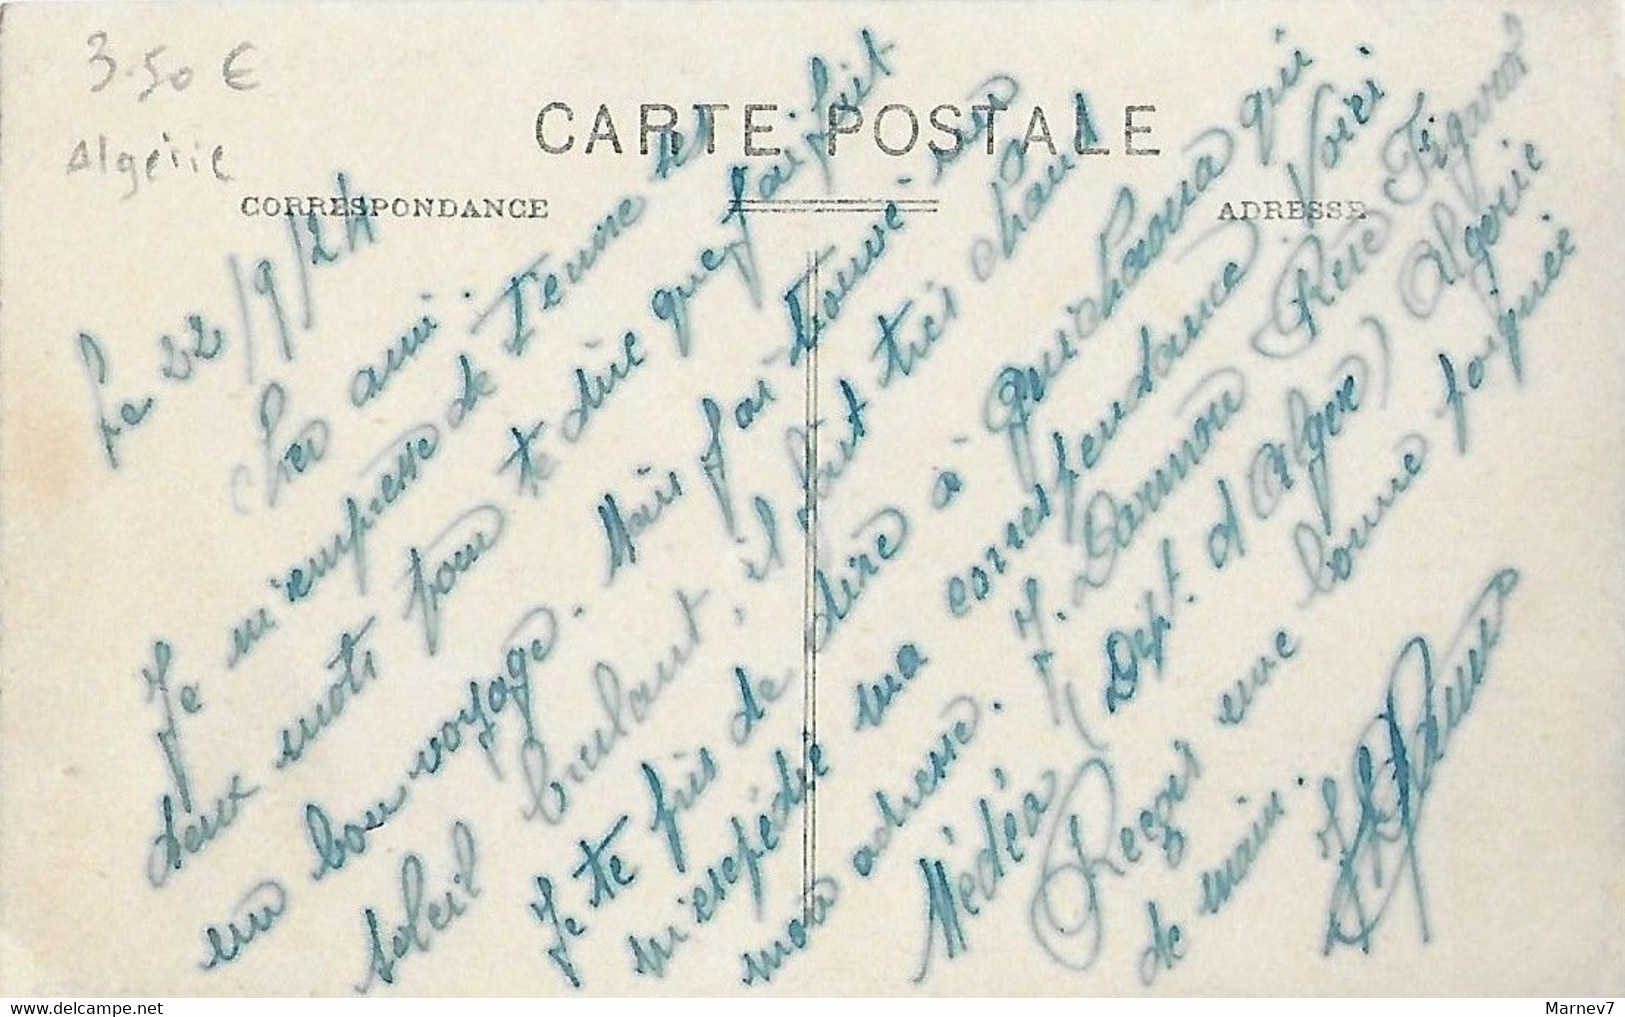 3.50 €
Algérie
CARTE POSTALE
CORRESPONDANCE
ADRESSE
Le 22/9/24
Cher ami.
Je m'empresse de t'ecrire ces
deux mots pour te dire que j'ai fait
un bon voyage. Mais j'ai trouvé un
soleil brulant, il fait très chaud
Je te pris de dire à Guichaoua qui
m'espédie ma correspondance. Voici
mon adresse. J. Darmon Rue Figarol
Médéa (Dept. d'Alger) Algerie
Reçois une bonne poignée
de main.
JDarmon
Marnev7